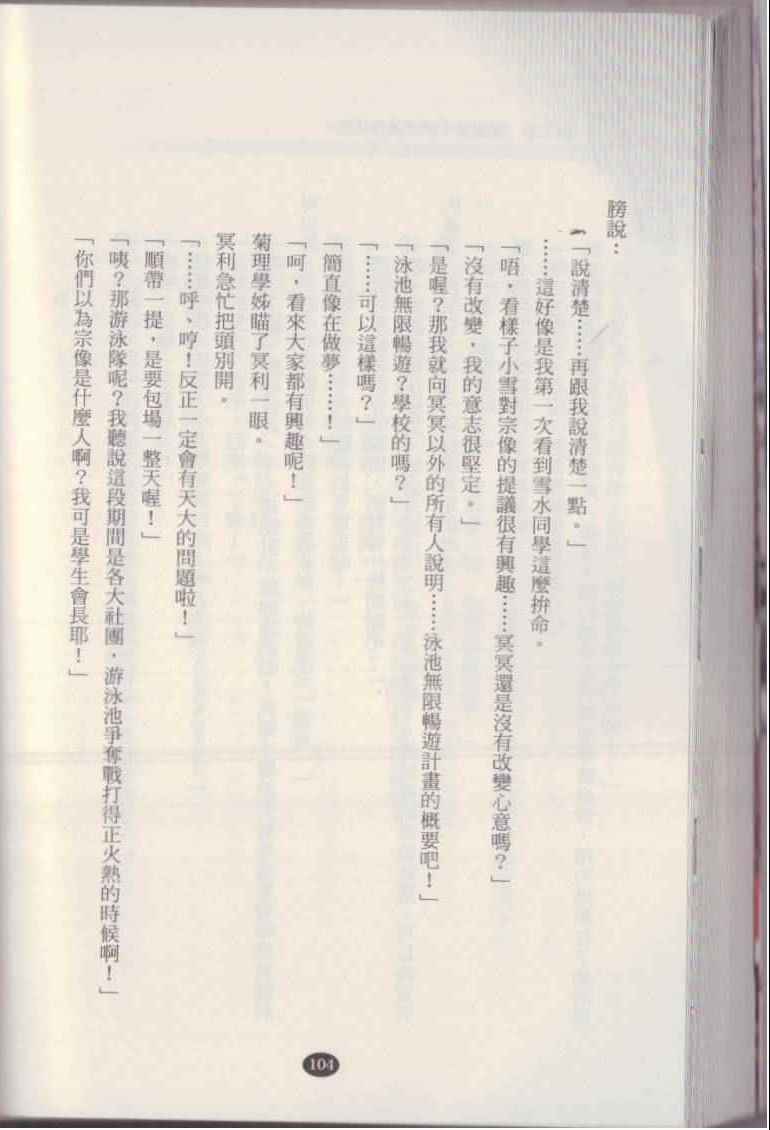 膀說：
「說清楚……再跟我說清楚一點。」
……這好像是我第一次看到雪水同學這麼拚命。
「唔，看樣子小雪對宗像的提議很有興趣……冥冥還是沒有改變心意嗎？」
「沒有改變，我的意志很堅定。」
「是喔？那我就向冥冥以外的所有人說明……泳池無限暢遊計畫的概要吧！」
「泳池無限暢遊？學校的嗎？」
「……可以這樣嗎？」
「簡直像在做夢……！」
「呵，看來大家都有興趣呢！」
菊理學姊瞄了冥利一眼。
冥利急忙把頭別開。
「……呼、哼！反正一定會有天大的問題啦！」
「順帶一提，是要包場一整天喔！」
「咦？那游泳隊呢？我聽說這段期間是各大社團，游泳池爭奪戰打得正火熱的時候啊！」
「你們以為宗像是什麼人啊？我可是學生會長耶！」
104